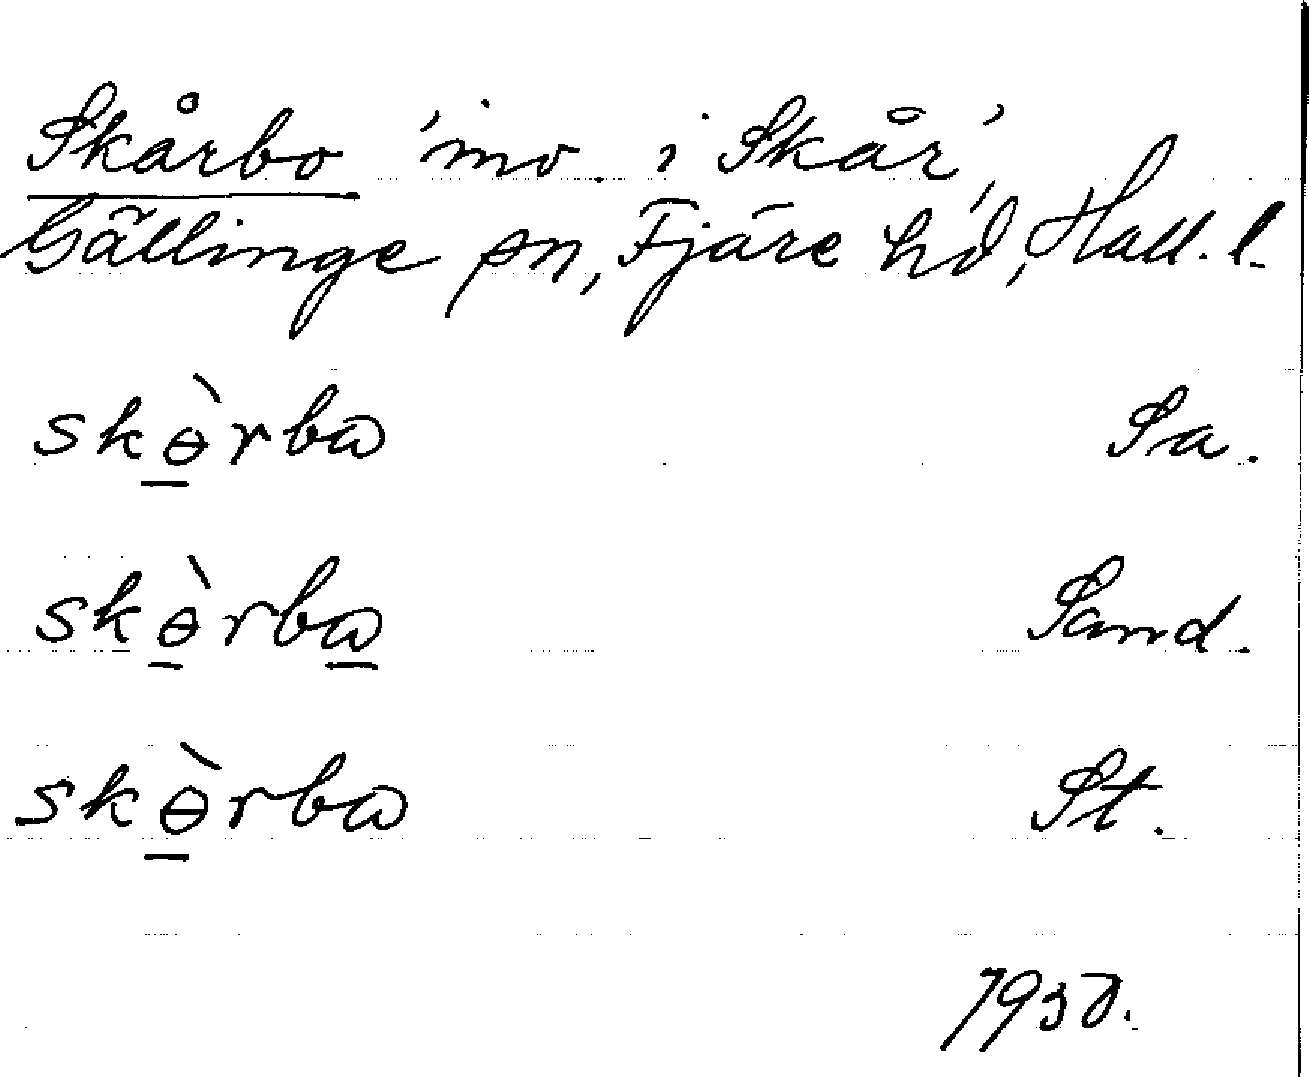 Skårbo 'inv. i Skår',
Gällinge sn, Fjäre hd, Hall. l.
skɵ̱̀rbɷ Sa.
skɵ̱̀rbɷ̱ Sand.
skɵ̱̀rbɷ St.
1930.